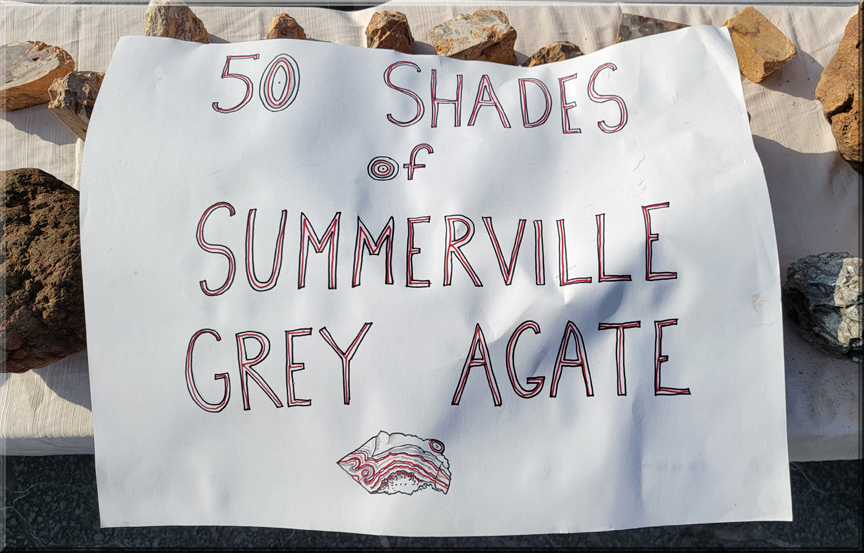 50 SHADES
of
SUMMERVILLE
GREY AGATE